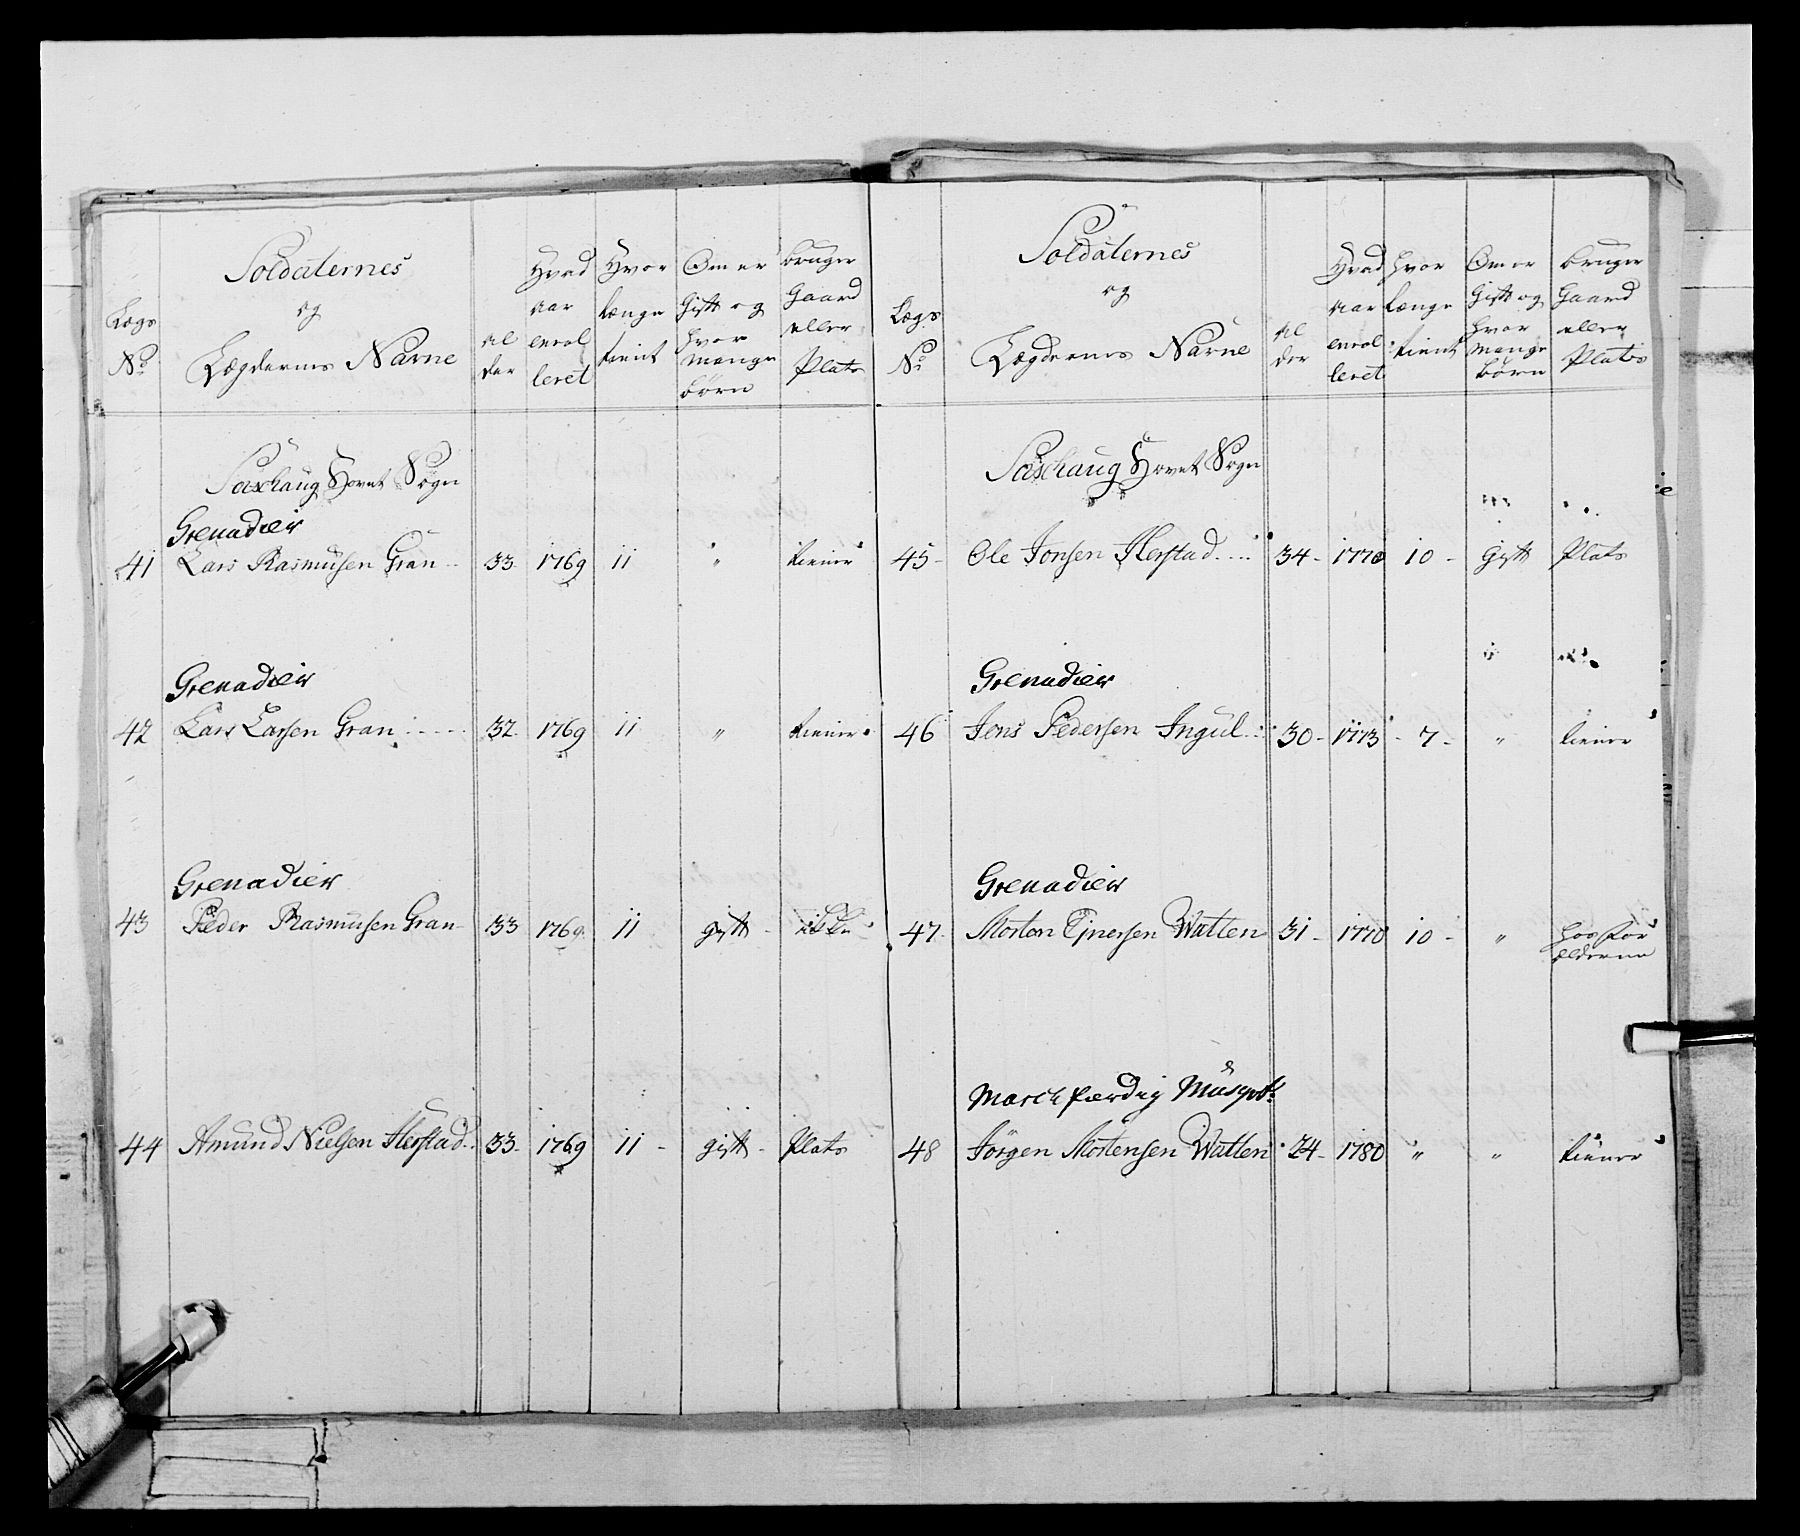 Lægs No
Soldaternes og Lægdernes Navne
Al der
Hvad aar enrol leret
Hvor længe tient
Om er Gift og hvor mange børn
bruger Gaard eller Plats
Hovet Sogn
Grenadier
41 Lars Rasmusen Gran 33 1769 11 " tiener
Grenadier
42 Lars Larsen Gran 32 1769 11 " tiener
Grenadier
43 Peder Rasmusen Gran 33 1769 11 gift
44 Amund Nielsen Herstad 33 1769 11 gift Plats
Lægs No
Soldaternes og Lægdernes Navne
Al der
Hvad aar enrol leret
hvor længe tient
Om er Gift og hvor mange børn
bruger Gaard eller Plats
Hovet Sogn
45 Ole Jonsen Herstad 34 1770 10 Gift Plats
Grenadier
46 Jens Pedersen Ingul 30 1773 7 " tiener
Grenadier
47 Morten Ejnersen Watten 31 1770 10 " hos for ælderne
March færdig Musqvt:
48 Jörgen Mortensen Watten 24 1780 " " tiener